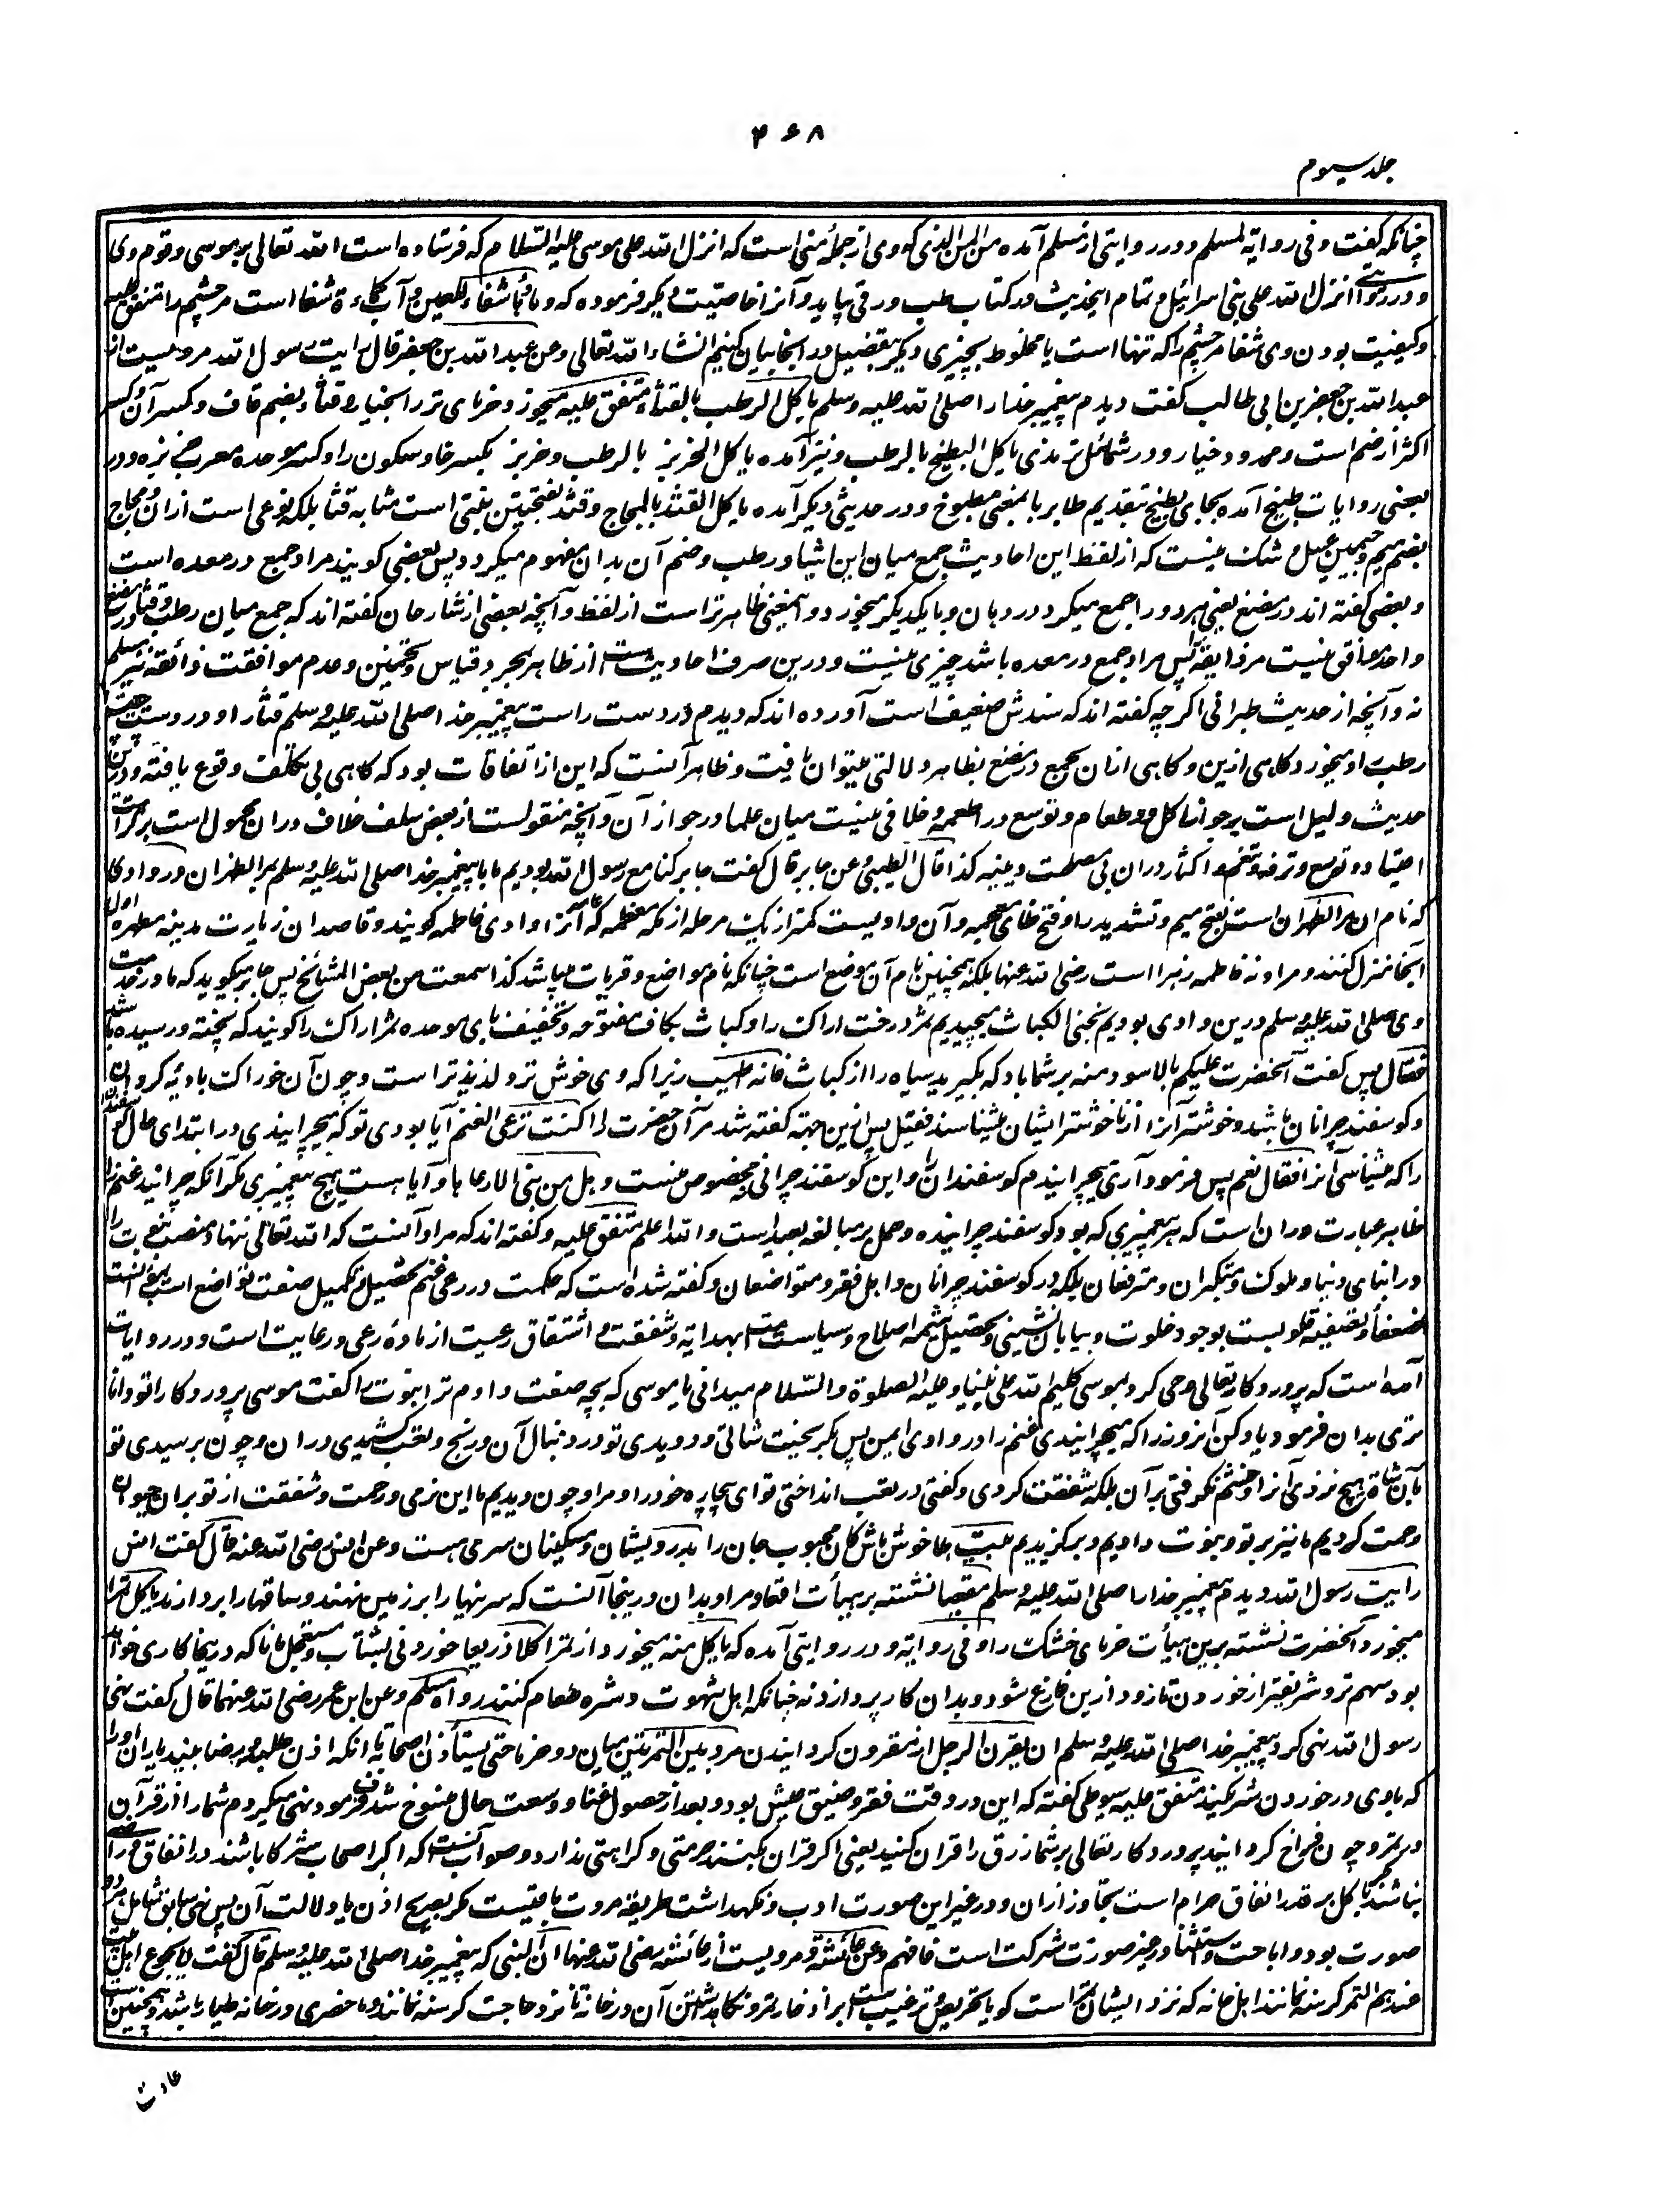 ۴۶۸
جلد سیوم
چنانکه گفت و فی روایة لمسلم و در روایتی از مسلم آمده من المن الذی که وی از جملهٔ منی است که انزل الله علی موسی علیه السلام که فرستاده است الله تعالی بر موسی و قوم وی
و در روایتے انزل الله علی بنی اسرائیل و تمام اینحدیث در کتاب طب و رقی بیاید و آنرا خاصیت دیگر فرموده که و ماؤها شفاء للعین و آب کماءة شفا است مر چشم را متفق علیه
و کیفیت بودن وی شفا مر چشم را که تنها است یا مخلوط بچیزی دیگر بتفصیل در آنجا بیان کنیم انشاء الله تعالی وعن عبد الله بن جعفر قال رایت رسول الله مرویست از
عبدالله بن جعفر بن ابی طالب گفت دیدم پیغمبر خدا را صلی الله علیه وسلم یاکل الرطب بالقثاء متفق علیه میخورد خرمای تر را بخیار و قثاء بضم قاف و کسر آن و کسر
اکثر از ضم است و ممدود خیار و در شمائل ترمذی یاکل البطیخ بالرطب و نیز آمده یاکل الخربز بالرطب و خربز بکسر خا و سکون را و کسر موحده معرب خربزه و در
بعضی روایات طبیخ آمده بجای بطیخ بتقدیم طا بر با بمعنی مطبوخ و در حدیثی دیگر آمده یاکل القثد بالمجاج و قثد بفتحتین نبتی است مشابه قثا بلکه نوعی است ازان و مجاج
بضم میم و جیمین عسل و شک نیست که از لفظ این احادیث جمع میان این اشیا و رطب و ضم آن بدان مفهوم میگردد پس بعضی گویند مراد جمع در معده است
و بعضی گفته اند در مضغ یعنی هر دو را جمع میکرد در دهان و با یکدیگر میخورد و اینمعنی ظاهر تر است از لفظ و آنچه بعضی از شارحان گفته اند که جمع میان رطب و قثا در مضغ
واحد موافق نیست مر ذایقه را پس مراد جمع در معده باشد چیزی نیست و درین صرف احادیث است از ظاهر بمجرد قیاس و تخمین و عدم موافقت ذائقه نیز مسلم
نه و آنچه از حدیث طبرانی اگرچه گفته اند که سندش ضعیف است آورده اند که دیدم در دست راست پیغمبر خدا صلی الله علیه وسلم قثا را و در دست چپ
رطب را و میخورد گاهی ازین و گاهی ازان بجمع در مضغ بظاهر دلالتی میتوان یافت و ظاهر آنست که این از اتفاقات بود که گاهی بی تکلف وقوع یافته و درین
حدیث دلیل است بر جواز اکل دو طعام و توسع در اطعمه و خلافی نیست میان علما در جواز آن و آنچه منقولست از بعض سلف خلاف دران محمول است بر کراهت
اعتیاد و توسع و ترفه و تنعم و اکثار دران بی مصلحت دینیه کذا قال الطیبی وعن جابر قال گفت جابر کنا مع رسول الله بودیم ما با پیغمبر خدا صلی الله علیه وسلم بمر الظهران در وادی
که نام آن مر الظهران است بفتح میم و تشدید را و فتح ظای معجمه و آن وادیست کمتر از یک مرحله از مکه معظمه که آنرا وادی فاطمه گویند و قاصدان زیارت مدینه مطهره اول
آنجا منزل کنند و مراد نه فاطمه زهرا است رضی الله عنها بلکه همچنین نام آن موضع است چنانکه نام مواضع و قریات میباشد کذا سمعت من بعض المشائخ پس جابر میگوید که ما در خدمت
وی صلی الله علیه وسلم درین وادی بودیم نجنی الکباث میچیدیم ثمر درخت اراک را و کباث بکاف مفتوحه و تخفیف بای موحده ثمر اراک را گویند که پخته و رسیده باشد
فقال پس گفت آنحضرت علیکم بالاسود منه بر شما باد که بگیرید سیاه را از کباث فانه اطیب زیرا که وی خوشتر و لذیذتر است و چون آن خوراک بادیه گردان
و گوسفند چرانان باشد و خوشتر آنرا از ناخوشتر ایشان میشناسند فقیل پس ازین جهته گفته شد مر آن حضرت را اکنت ترعی الغنم آیا بودی تو که میچرانیدی در ابتدای حال گوسفندان
را که میشناسی آنرا فقال نعم پس فرمود آری میچرانیدم گوسفندان را و این گوسفند چرانی مخصوص نیست و هل من نبی الا رعاها و آیا هست هیچ پیغمبری مگر آنکه چرانید غنم را
ظاهر عبارت دران است که هر پیغمبری که بود گوسفند چرانیده و حمل بر مبالغه بعید است و الله اعلم متفق علیه و گفته اند که مراد آنست که الله تعالی ننهاد منصب نبوت را
در ابنای دنیا و ملوک و متکبران و مترفهان بلکه در گوسفند چرانان و اهل فقر و متواضعان و گفته شده است که حکمت در رعی غنم تحصیل و تکمیل صفت تواضع است و موانست
بضعفا و تصفیهٔ قلوبست بوجود خلوت و بیابان نشینی و تحصیل شیمه اصلاح و سیاست امت بهدایة و شفقت و اشتقاق رعیت از مادهٔ رعی و رعایت است و در روایات
آمده است که پروردگار تعالی وحی کرد بموسی کلیم الله علی نبینا و علیه الصلوة والسلام میدانی یا موسی که بچه صفت دادم ترا نبوت را گفت موسی پروردگارا تو دانا
تری بدان فرمود یاد کن آنروز را که میچرانیدی غنم را در وادی ایمن پس بگریخت شاتی و دویدی تو در دنبال آن و رنج و تعب کشیدی دران و چون برسیدی تو
بآن شاة هیچ نزدی آنرا و خشم نگرفتی برآن بلکه شفقت کردی و گفتی در تعب انداختی تو ای بیچاره خود را و مرا و چون دیدیم ما این نرمی و رحمت و شفقت از تو بران حیوان
رحمت کردیم ما نیز بر تو و نبوت دادیم و برگزیدیم بیت ها خوش باش کان محبوب جان را بدرویشان و مسکینان سری هست وعن انس رضی الله عنه قال گفت انس
رایت رسول الله دیدم پیغمبر خدا را صلی الله علیه وسلم مقعیا نشسته بر هیأت اقعا و مراد بدان درینجا آنست که سرینها را بر زمین نهند و ساقها را بردارند یاکل تمرا
میخورد آنحضرت نشسته برین هیأت خرمای خشک را و فی روایة و در روایتی آمده که یاکل منه میخورد از تمر اکلا ذریعا خوردنی بشتاب و مستعجل مانا که درینجا کاری خواهد
بود مهم تر و شریفتر از خوردن تا زود ازین فارغ شود و بدان کار پردازد نه چنانکه اهل شهوت و شره طعام کنند رواه مسلم وعن ابن عمر رضی الله عنهما قال گفت نهی
رسول الله نهی کرد پیغمبر خدا صلی الله علیه وسلم ان یقرن الرجل از مقرون گردانیدن مرد بین التمرتین میان دو خرما حتی یستأذن اصحابه تا آنکه اذن طلبد و رضا بیند یاران را
که با وی در خوردن شریکند متفق علیه سیوطی گفته که این در وقت فقر و ضیق عیش بود و بعد از حصول غنا و وسعت حال منسوخ شد فرمود نهی میکردم شما را از قران
در تمر و چون فراخ گردانید پروردگار تعالی بر شما رزق را قران کنید یعنی اگر قران بکنند حرمتی و کراهتی ندارد و صواب آنست که اگر اصحاب شرکا باشند در انفاق و راضی
نباشند اکل بر قدر انفاق حرام است تجاوز ازان و در غیر این صورت ادب و نگهداشت طریقه مروت باقیست مگر بصریح اذن یا دلالت آن پس نهی سابق شامل هر دو
صورت بود و اباحت و استثنا در غیر صورت شرکت است فافهم وعن عائشة و مرویست از عائشه رضی الله عنها ان النبی که پیغمبر خدا صلی الله علیه وسلم قال گفت لا یجوع اهل بیت
عندهم التمر گرسنه نمانند اهل خانه که نزد ایشان تمر است گویا تحریض و ترغیب است بر ادخار تمر و نگاهداشتن آن در خانه تا نزد حاجت گرسنه نمانند و ما حضری در خانه طیار باشد و همچنین است
عادت